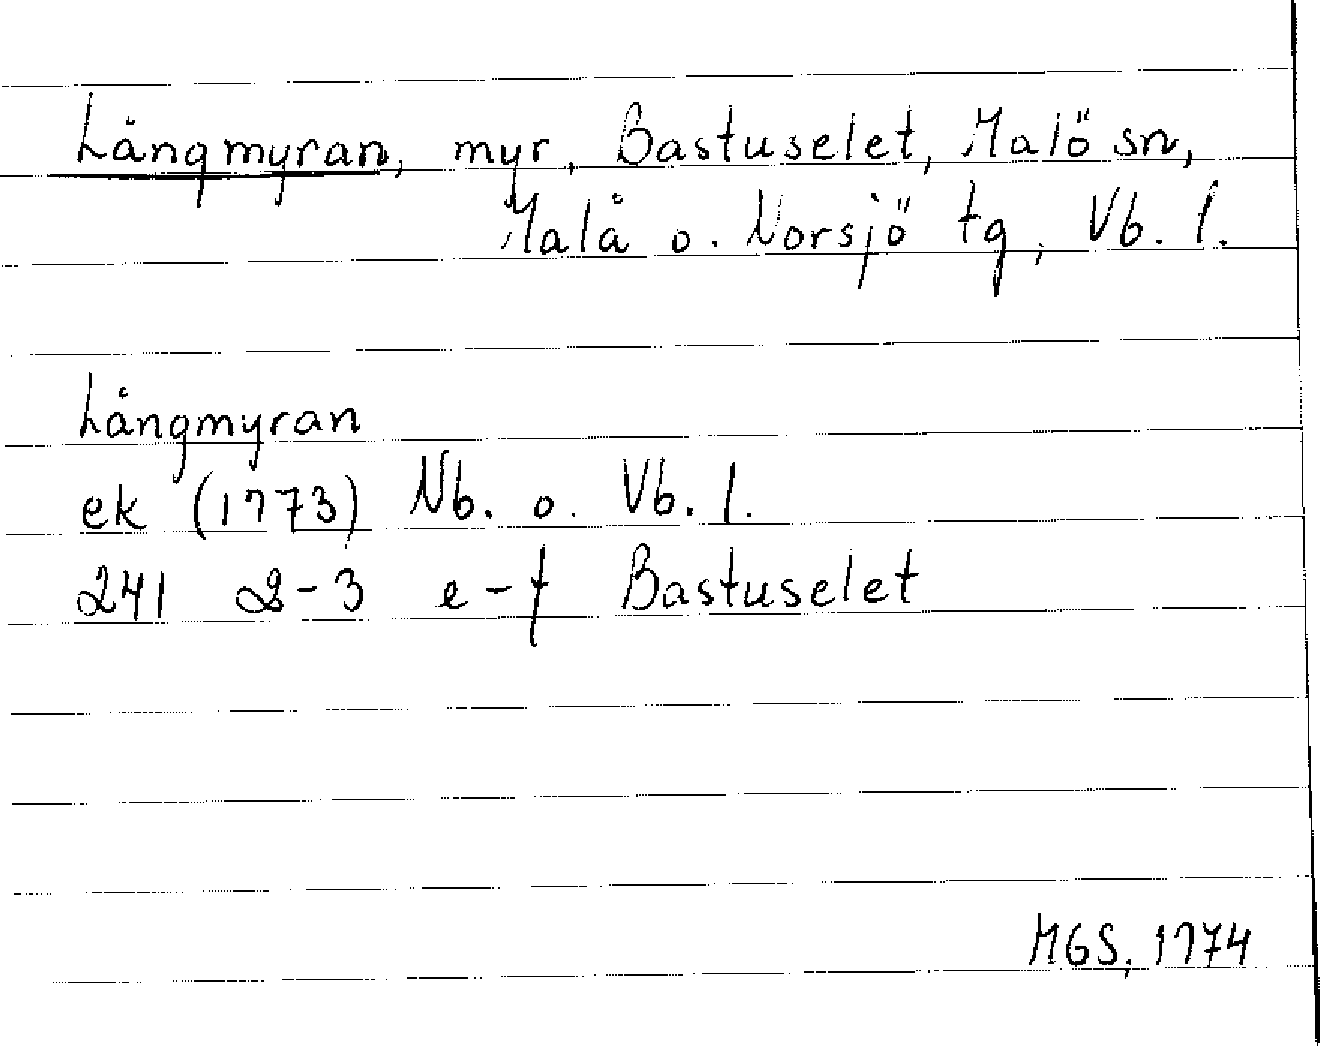 Långmyran, myr, Bastuselet, Malö sn,
Malå o. Norsjö tg, Vb. l.
Långmyran
ek (1973) Nb. o. Vb. l.
241 2-3 e-f Bastuselet
MGS, 1974